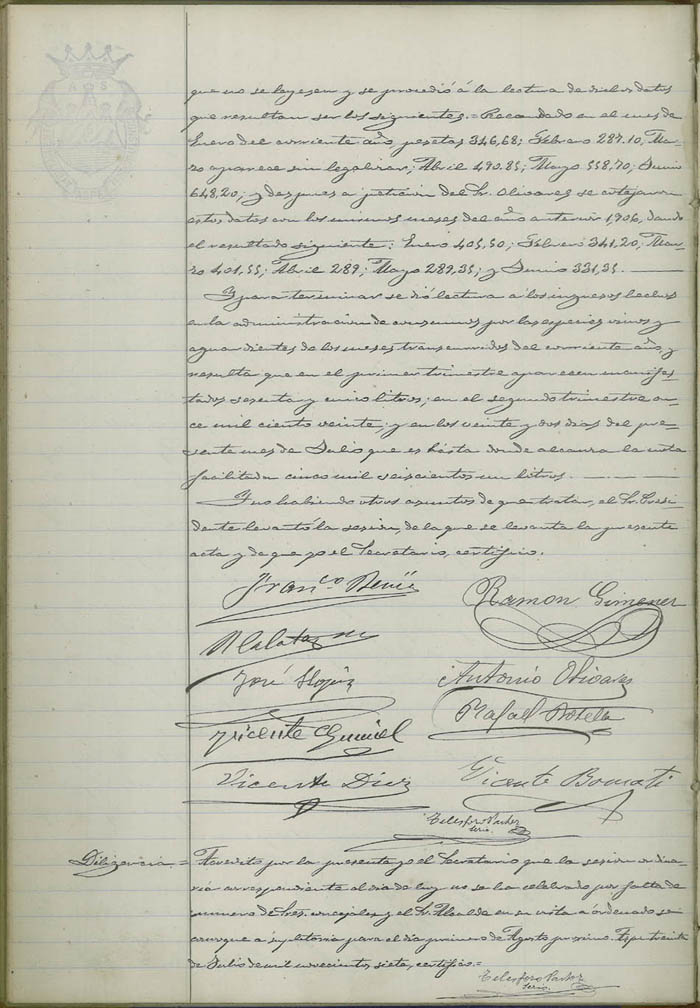 que no se leyesen y se procedió á la lectura de dichos datos
que resultan ser los siguientes.= Recaudado en el mes de
Enero del corriente año, pesetas 346,68; Febrero 287.10, Mar-
zo aparece sin legalizar; Abril 490.85; Mayo 558,70; Junio
648,20; y despues a peticion del Sr. Olivares se cotejaron
estos datos con los mismos meses del año anterior 1,906, dando
el resultado siguiente: Enero 405,50; Febrero 341,20; Mar-
zo 401,55; Abril 289; Mayo 289,35; y Junio 331,35.
Y para terminar se dió lectura a los ingresos hechos
en la administracion de consumos por las especies vinos y
aguardientes de los meses transcurridos del corriente año, y
resulta que en el primer trimestre aparecen manifes-
tados sesenta y cinco litros; en el segundo trimestre on-
ce mil ciento veinte; y en los veinte y dos dias del pre-
sente mes de Julio que es hasta donde alcanza la nota
facilitada cinco mil seiscientos un litros.
Y no habiendo otros asuntos de que tratar, el Sr. Presi-
dente levantó la sesion, de la que se levanta la presente
acta y de que yo el Secretario, certifico.
Franco
Ramon Gimenez
José
Antonio Olivares
Rafael Botella
Vicente
Vicente Diez
Vicente Bonmati
Telesforo
Srio.
Diligencia = Acredito por la presente yo el Secretario que la sesion ordina-
ria correspondiente al dia de hoy no se ha celebrado por falta de
numero de Sres. concejales y el Sr. Alcalde en su vista a ordenado se
convoque a supletoria para el dia primero de Agosto proximo. Aspe treinta
de Julio de mil novecientos siete, certifico.=
Telesforo
Srio.